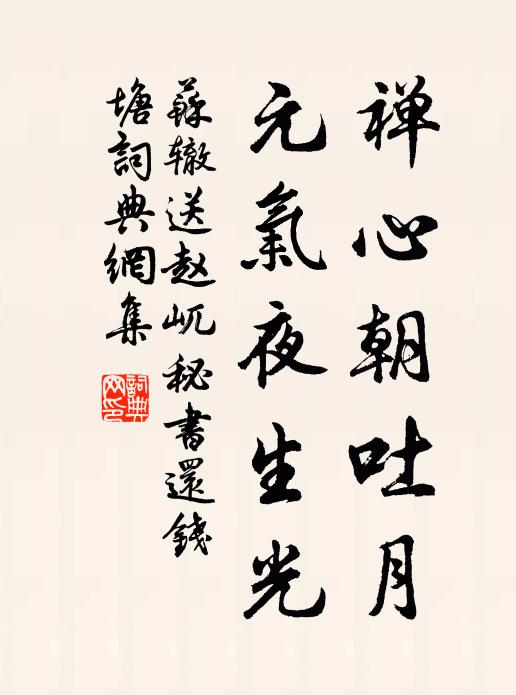 禅心朝吐月
元氣夜生光
蘇辙送赵屼秘書還錢
塘詞典網集
詞典
网印